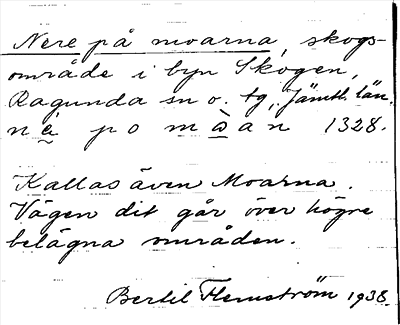 Nere på moarna, skogs-
område i byn Skogen,
Ragunda sn o. tg, Jämtl. län.
né̤ p o m à̤ a n 1328.
Kallas även Moarna.
Vägen dit går över högre
belägna områden.
Bertil Flemström 1938.